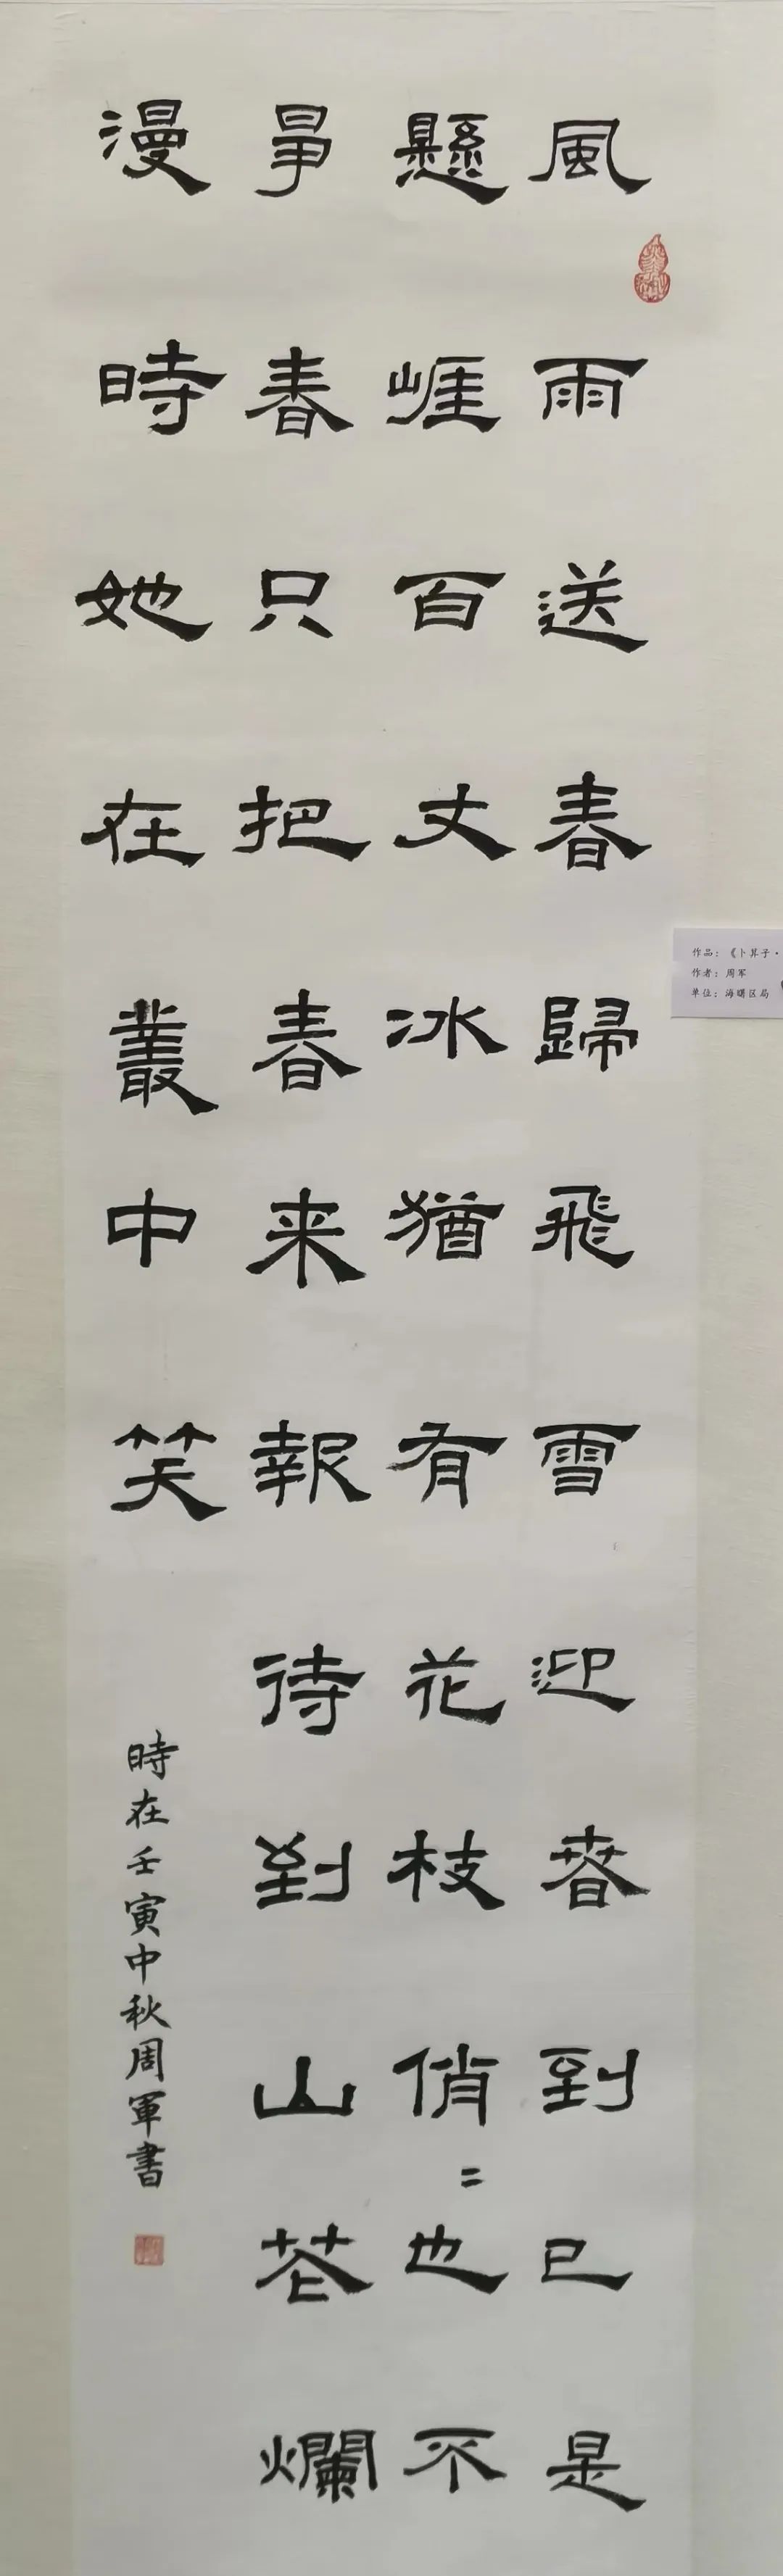 風雨送春歸飛雪迎春到已是
懸崖百丈冰猶有花枝俏〻也不
爭春只把春来報待到山花爛
漫時她在叢中笑
時在壬寅中秋周軍書
作品：《卜算子·
作者：周军
单位：海曙区局